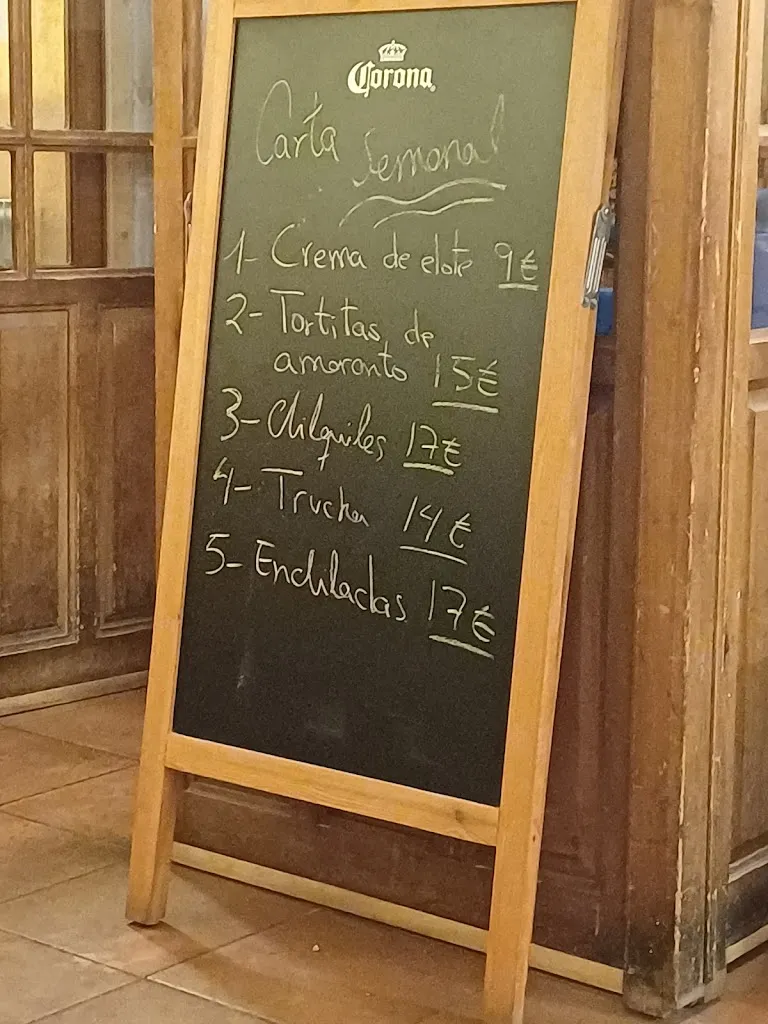 Corona
Carta Semanal
1- Crema de elote 9€
2- Tortitas de
amaranto 15€
3- Chilquiles 17€
4- Trucha 14€
5- Enchiladas 17€